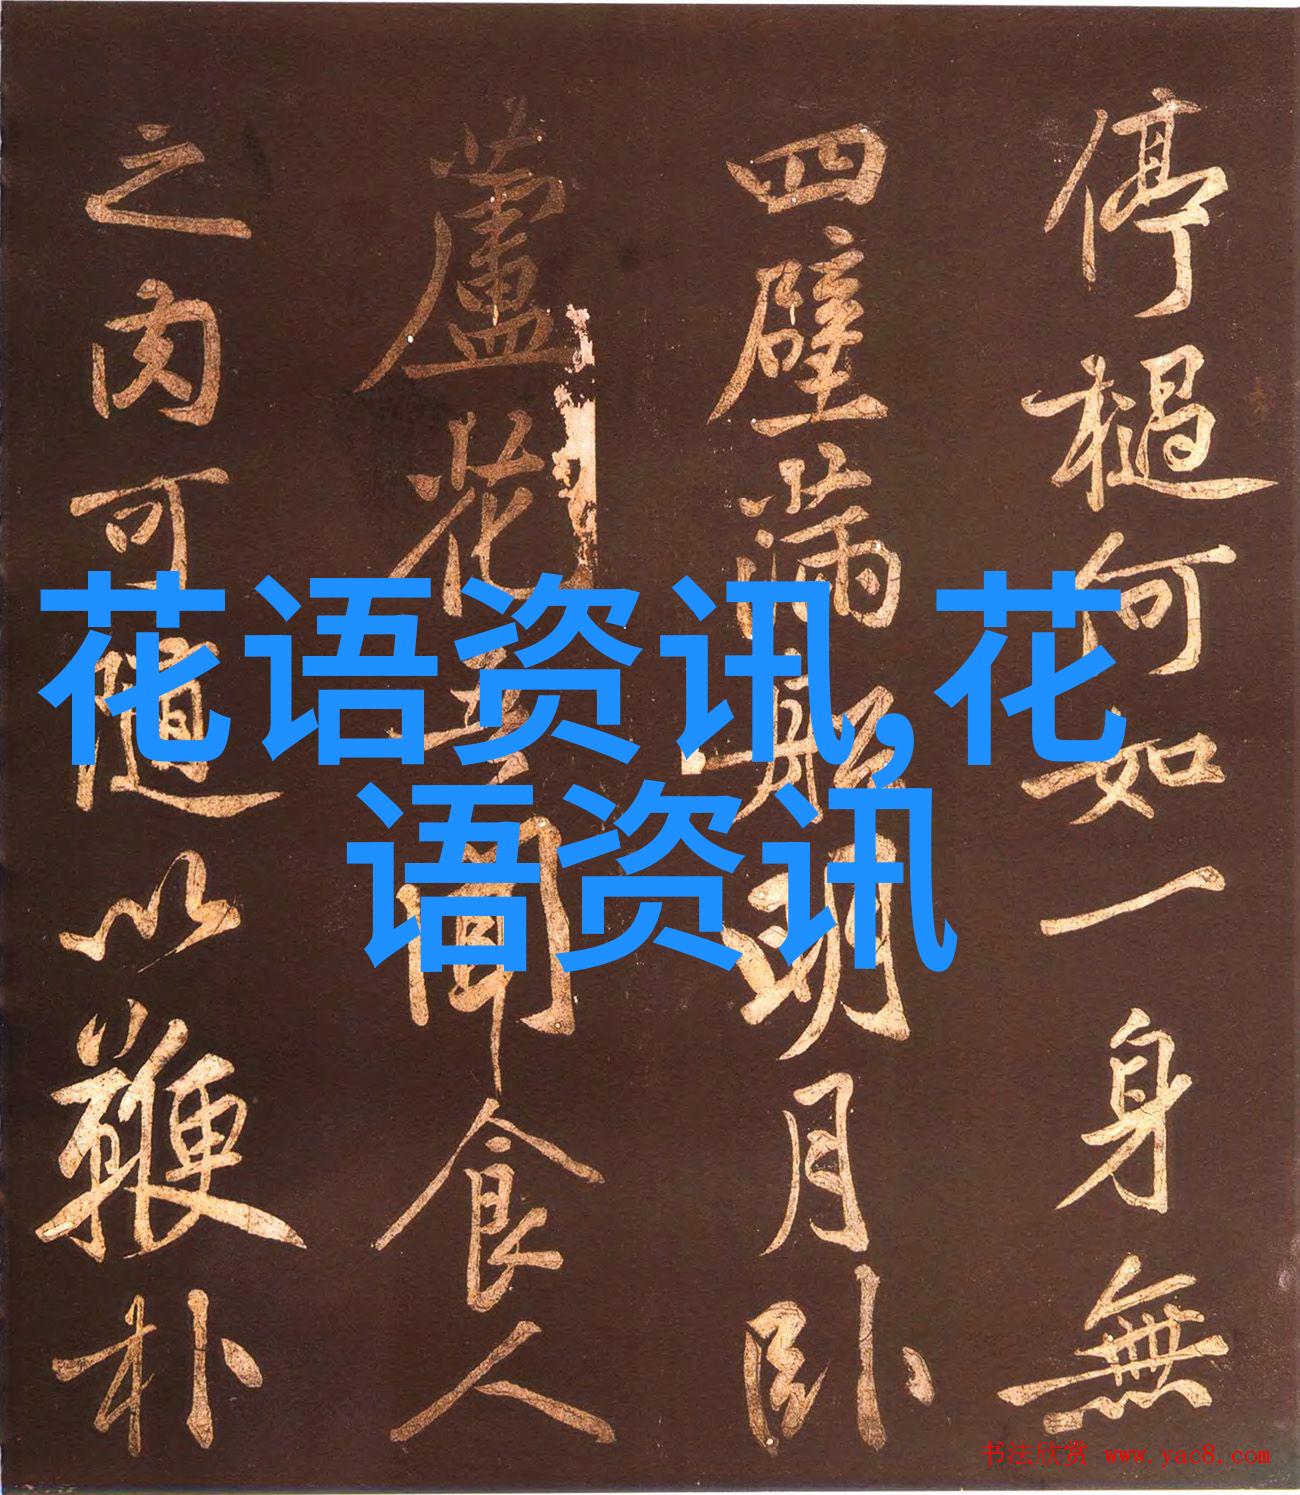 停檛何如一身無
四壁滿船明月卧
蘆花吾聞食人
之肉可隨以鞭朴
花语资讯,花
语资讯
书法欣赏 www.yac8.com